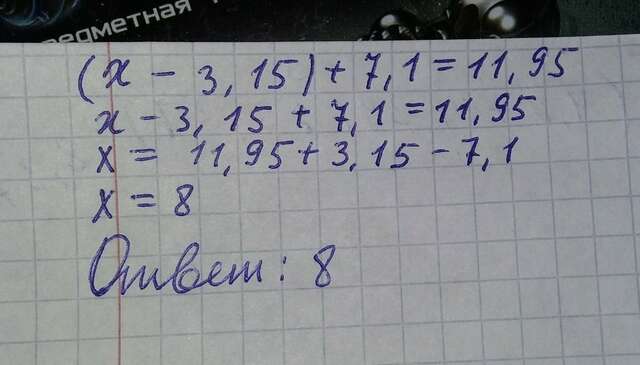 едметная
(x - 3,15) + 7,1 = 11,95
x - 3,15 + 7,1 = 11,95
x = 11,95 + 3,15 - 7,1
x = 8
Ответ: 8